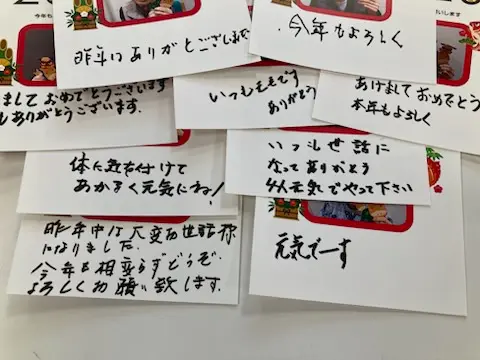 今年も
します
昨年はありがとございました
今年もよろしく
ましておめでとうございます
もありがとうございます.
いつもです
ありがとう
あけましておめでとう
本年もよろしく
体に気を付けて
あかるく元気にね!
いつもせ話に
なってありがとう
元気でやって下さい
昨年中は大変お世話様
になりました.
今年も相変らずどうぞ.
よろしくお願い致します.
元気でーす